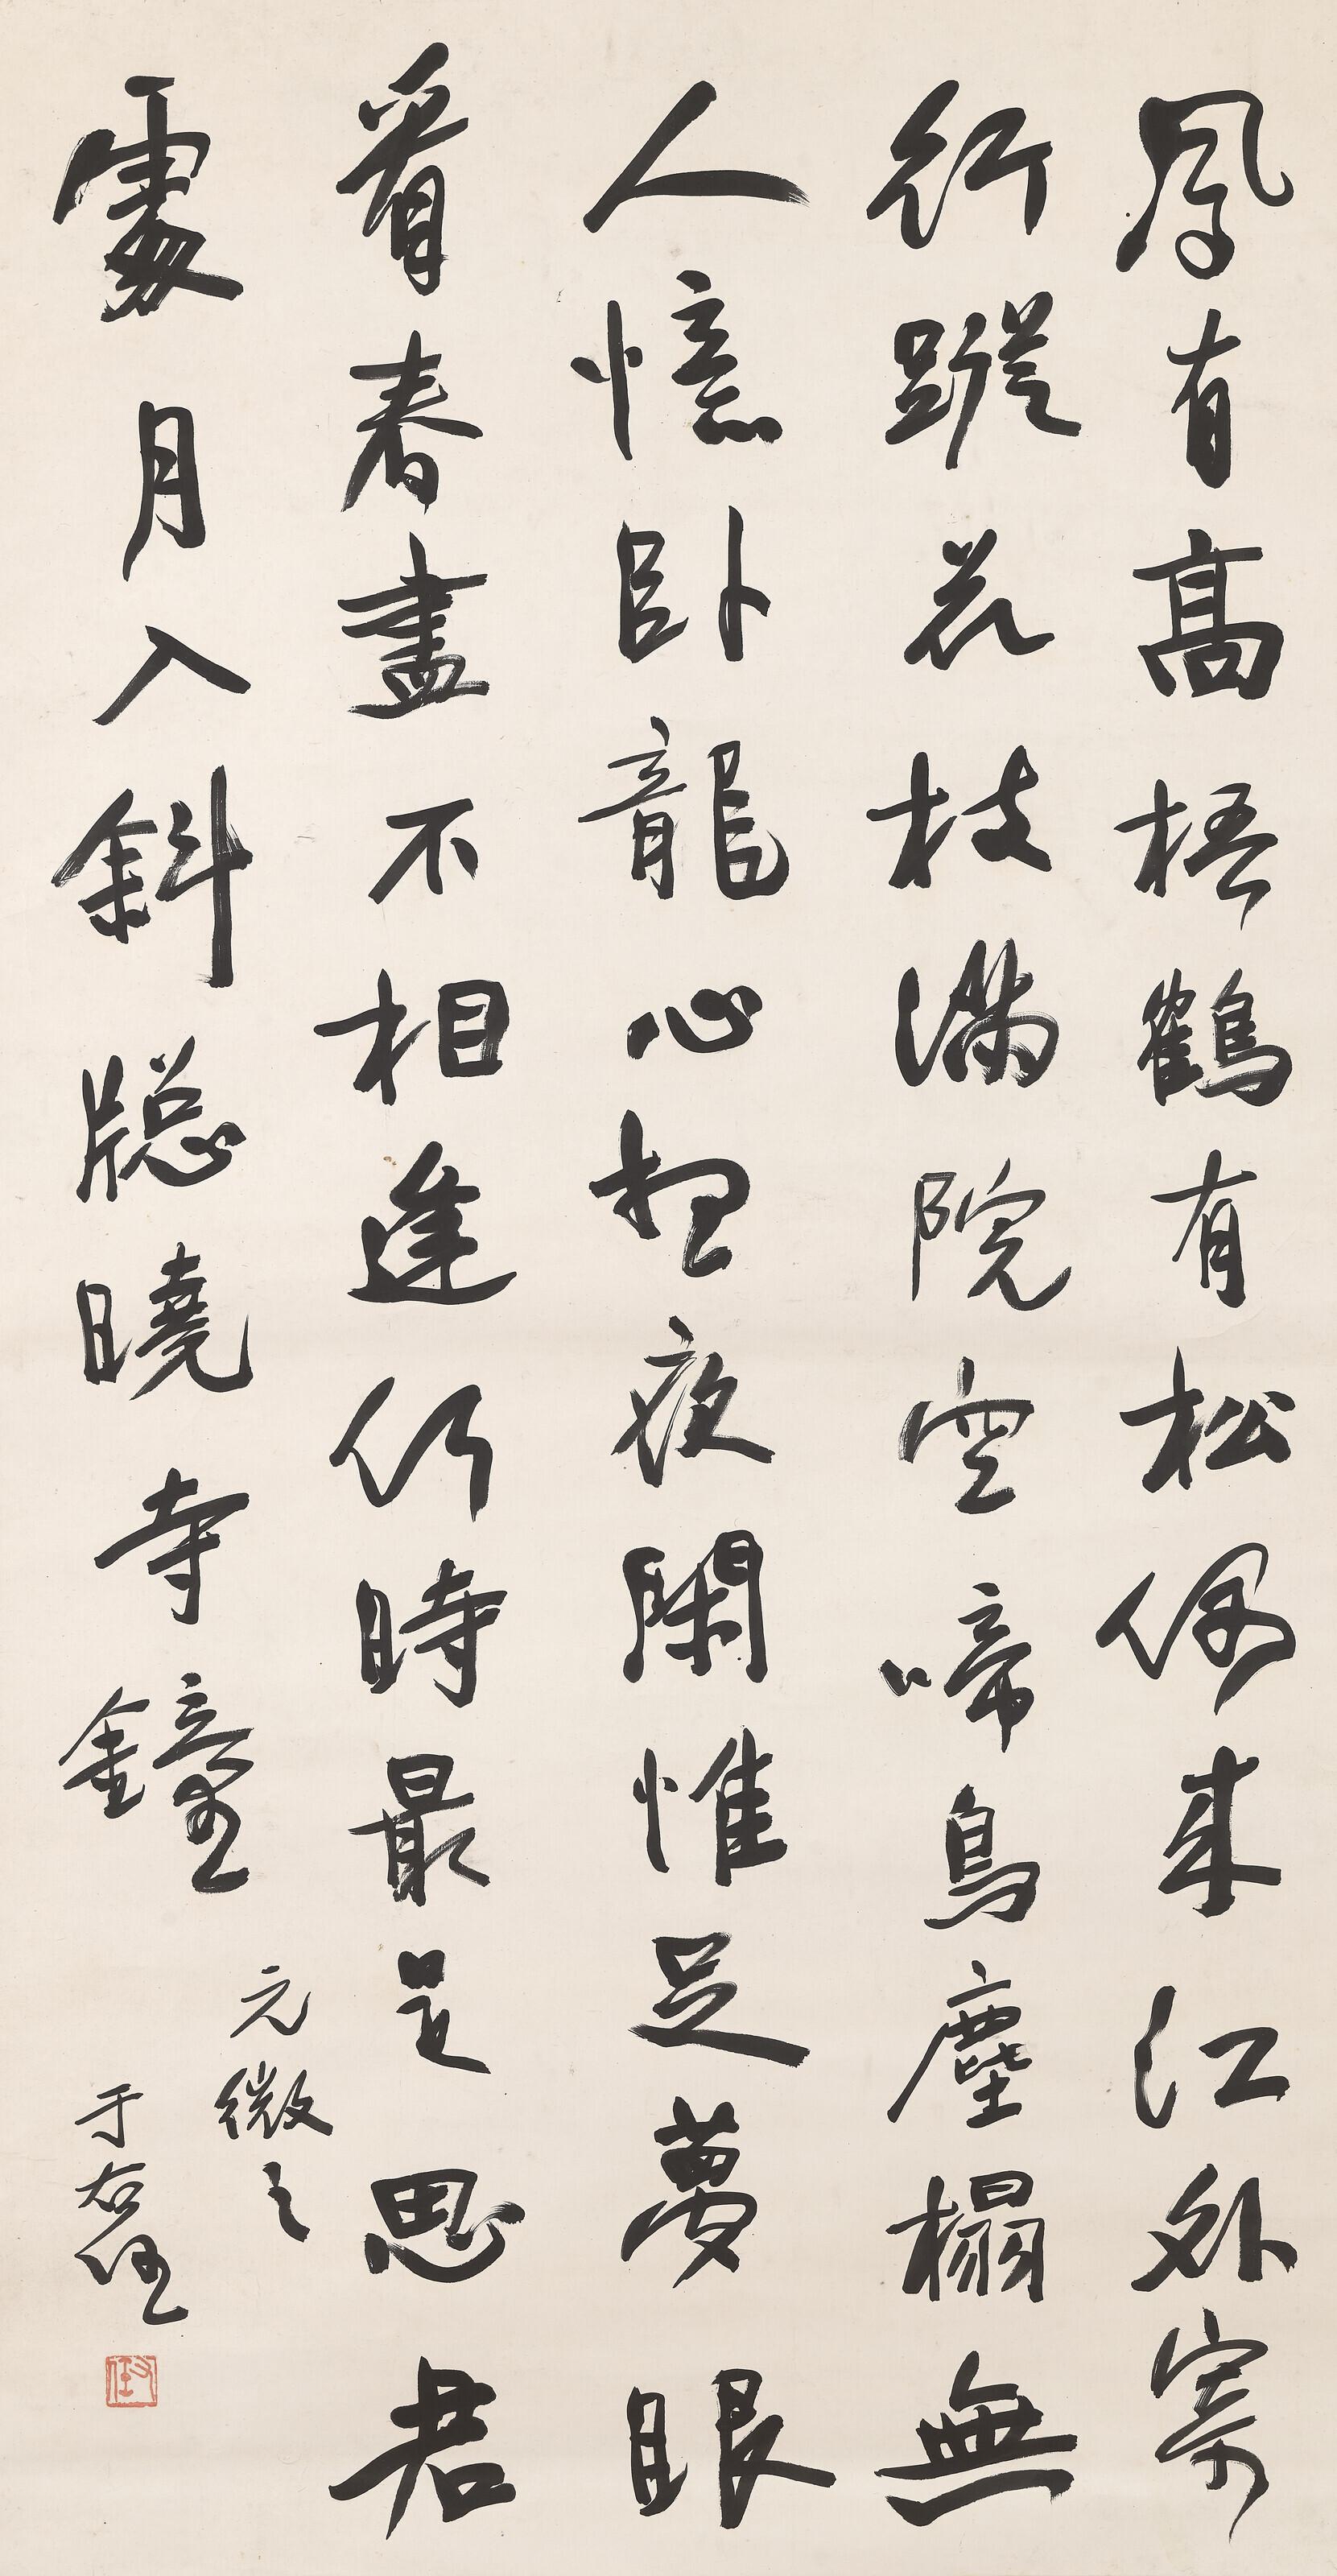 鳳有高梧鶴有松偶来江外寄
行蹤花枝滿院空啼鳥塵榻無
人憶卧龍心想夜閑惟足夢眼
看春盡不相逢何時最是思君
處月入斜牎曉寺鐘
元微之
于右任
右任